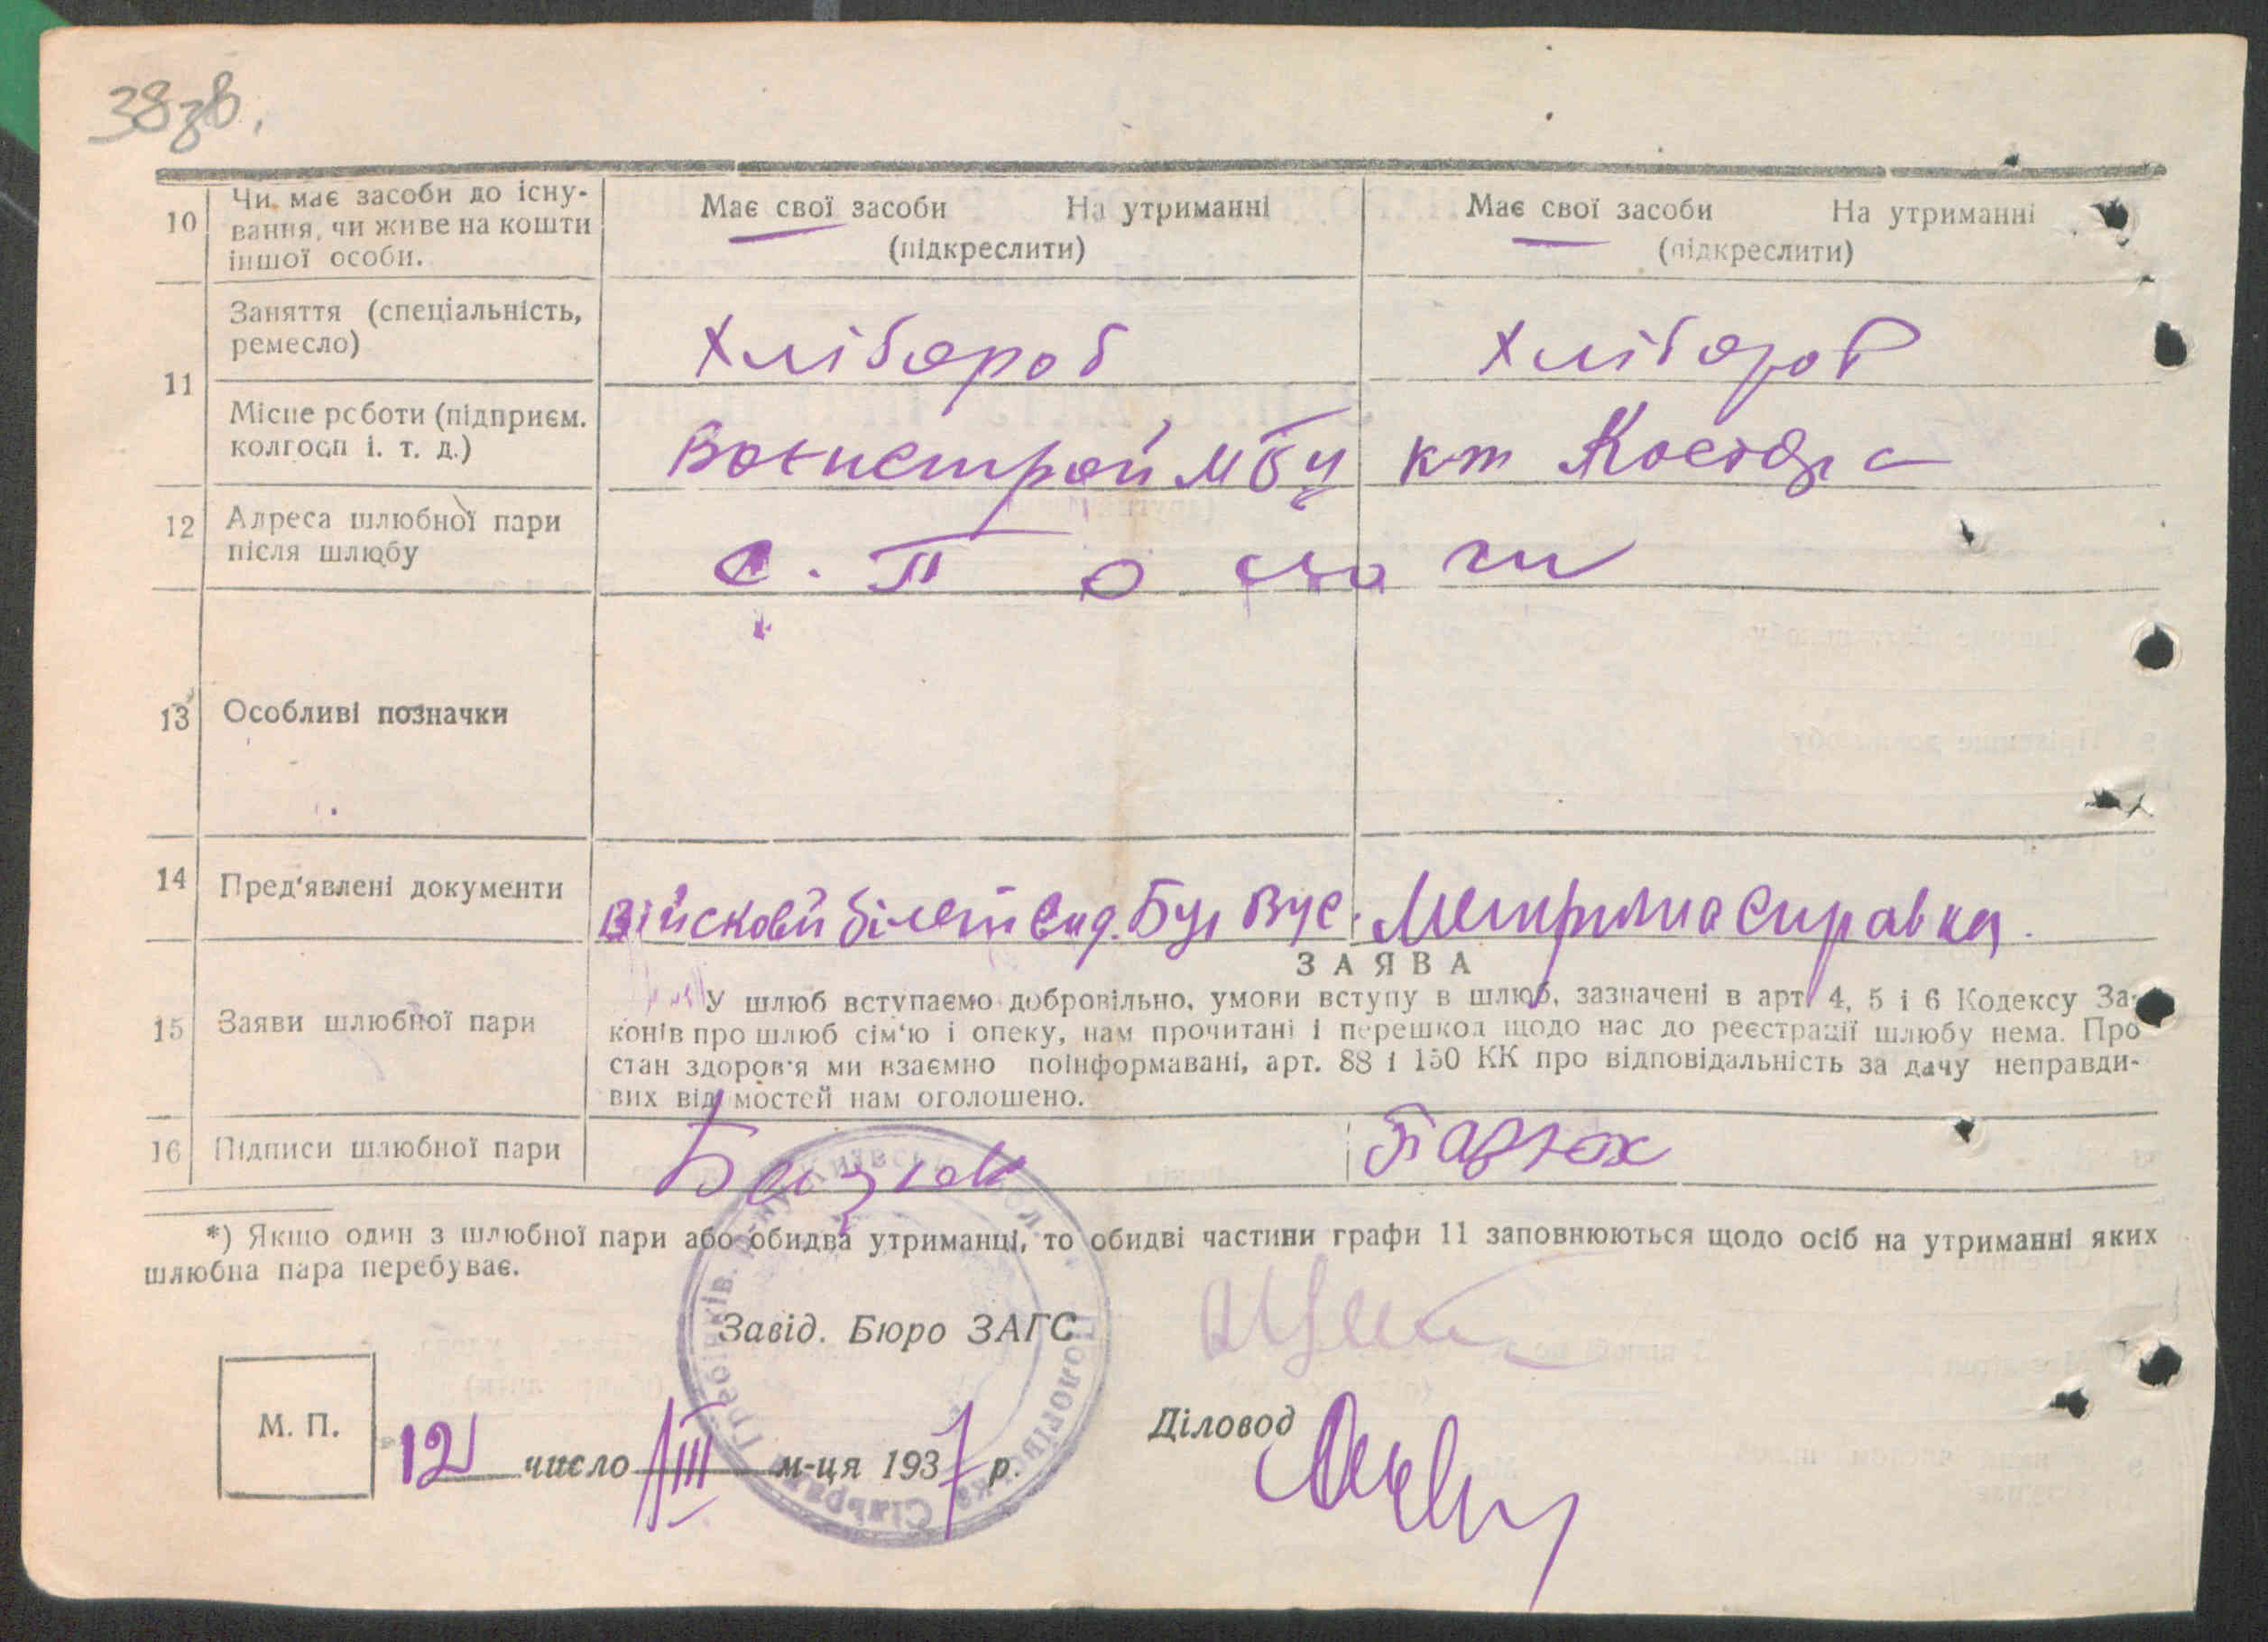 38зв.
10 Чи має засоби до існу-
вання, чи живе на кошти
іншої особи.
Має свої засоби На утриманні
(підкреслити)
Має свої засоби На утриманні
(підкреслити)
11 Заняття (спеціальність,
ремесло)
Хлібороб
Хлібороб
Місце роботи (підприєм.
колгосп і. т. д.)
МБУ
кт
12 Адреса шлюбної пари
після шлюбу
с. Пологи
13 Особливі позначки
14 Пред'явлені документи
Війсковй білет вид. Бул Вус.
Метрична справка.
15 Заяви шлюбної пари
ЗАЯВА
У шлюб вступаємо добровільно, умови вступу в шлюб, зазначені в арт. 4, 5 і 6 Кодексу За-
конів про шлюб сім'ю і опеку, нам прочитані і перешкод щодо нас до реєстрації шлюбу нема. Про
стан здоров'я ми взаємно поінформавані, арт. 88 і 150 КК про відповідальність за дачу неправди-
вих відомостей нам оголошено.
16 Підписи шлюбної пари
*) Якщо один з шлюбної пари або обидва утриманці, то обидві частини графи 11 заповнюються щодо осіб на утриманні яких
шлюбна пара перебуває.
Завід. Бюро ЗАГС
М. П.
12 число III м-ця 1937 р.
Діловод
Пологівська Сільрада Гребінків.